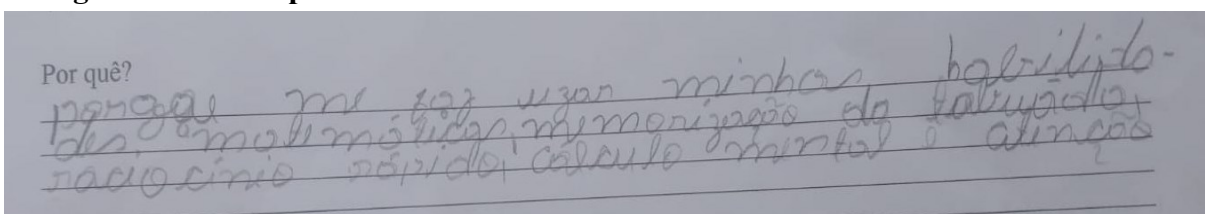 Por quê?
porque me faz usar minhas habilida-
des matemáticas, memorização da tabuada,
raciocínio rápido, cálculo mental e atenção